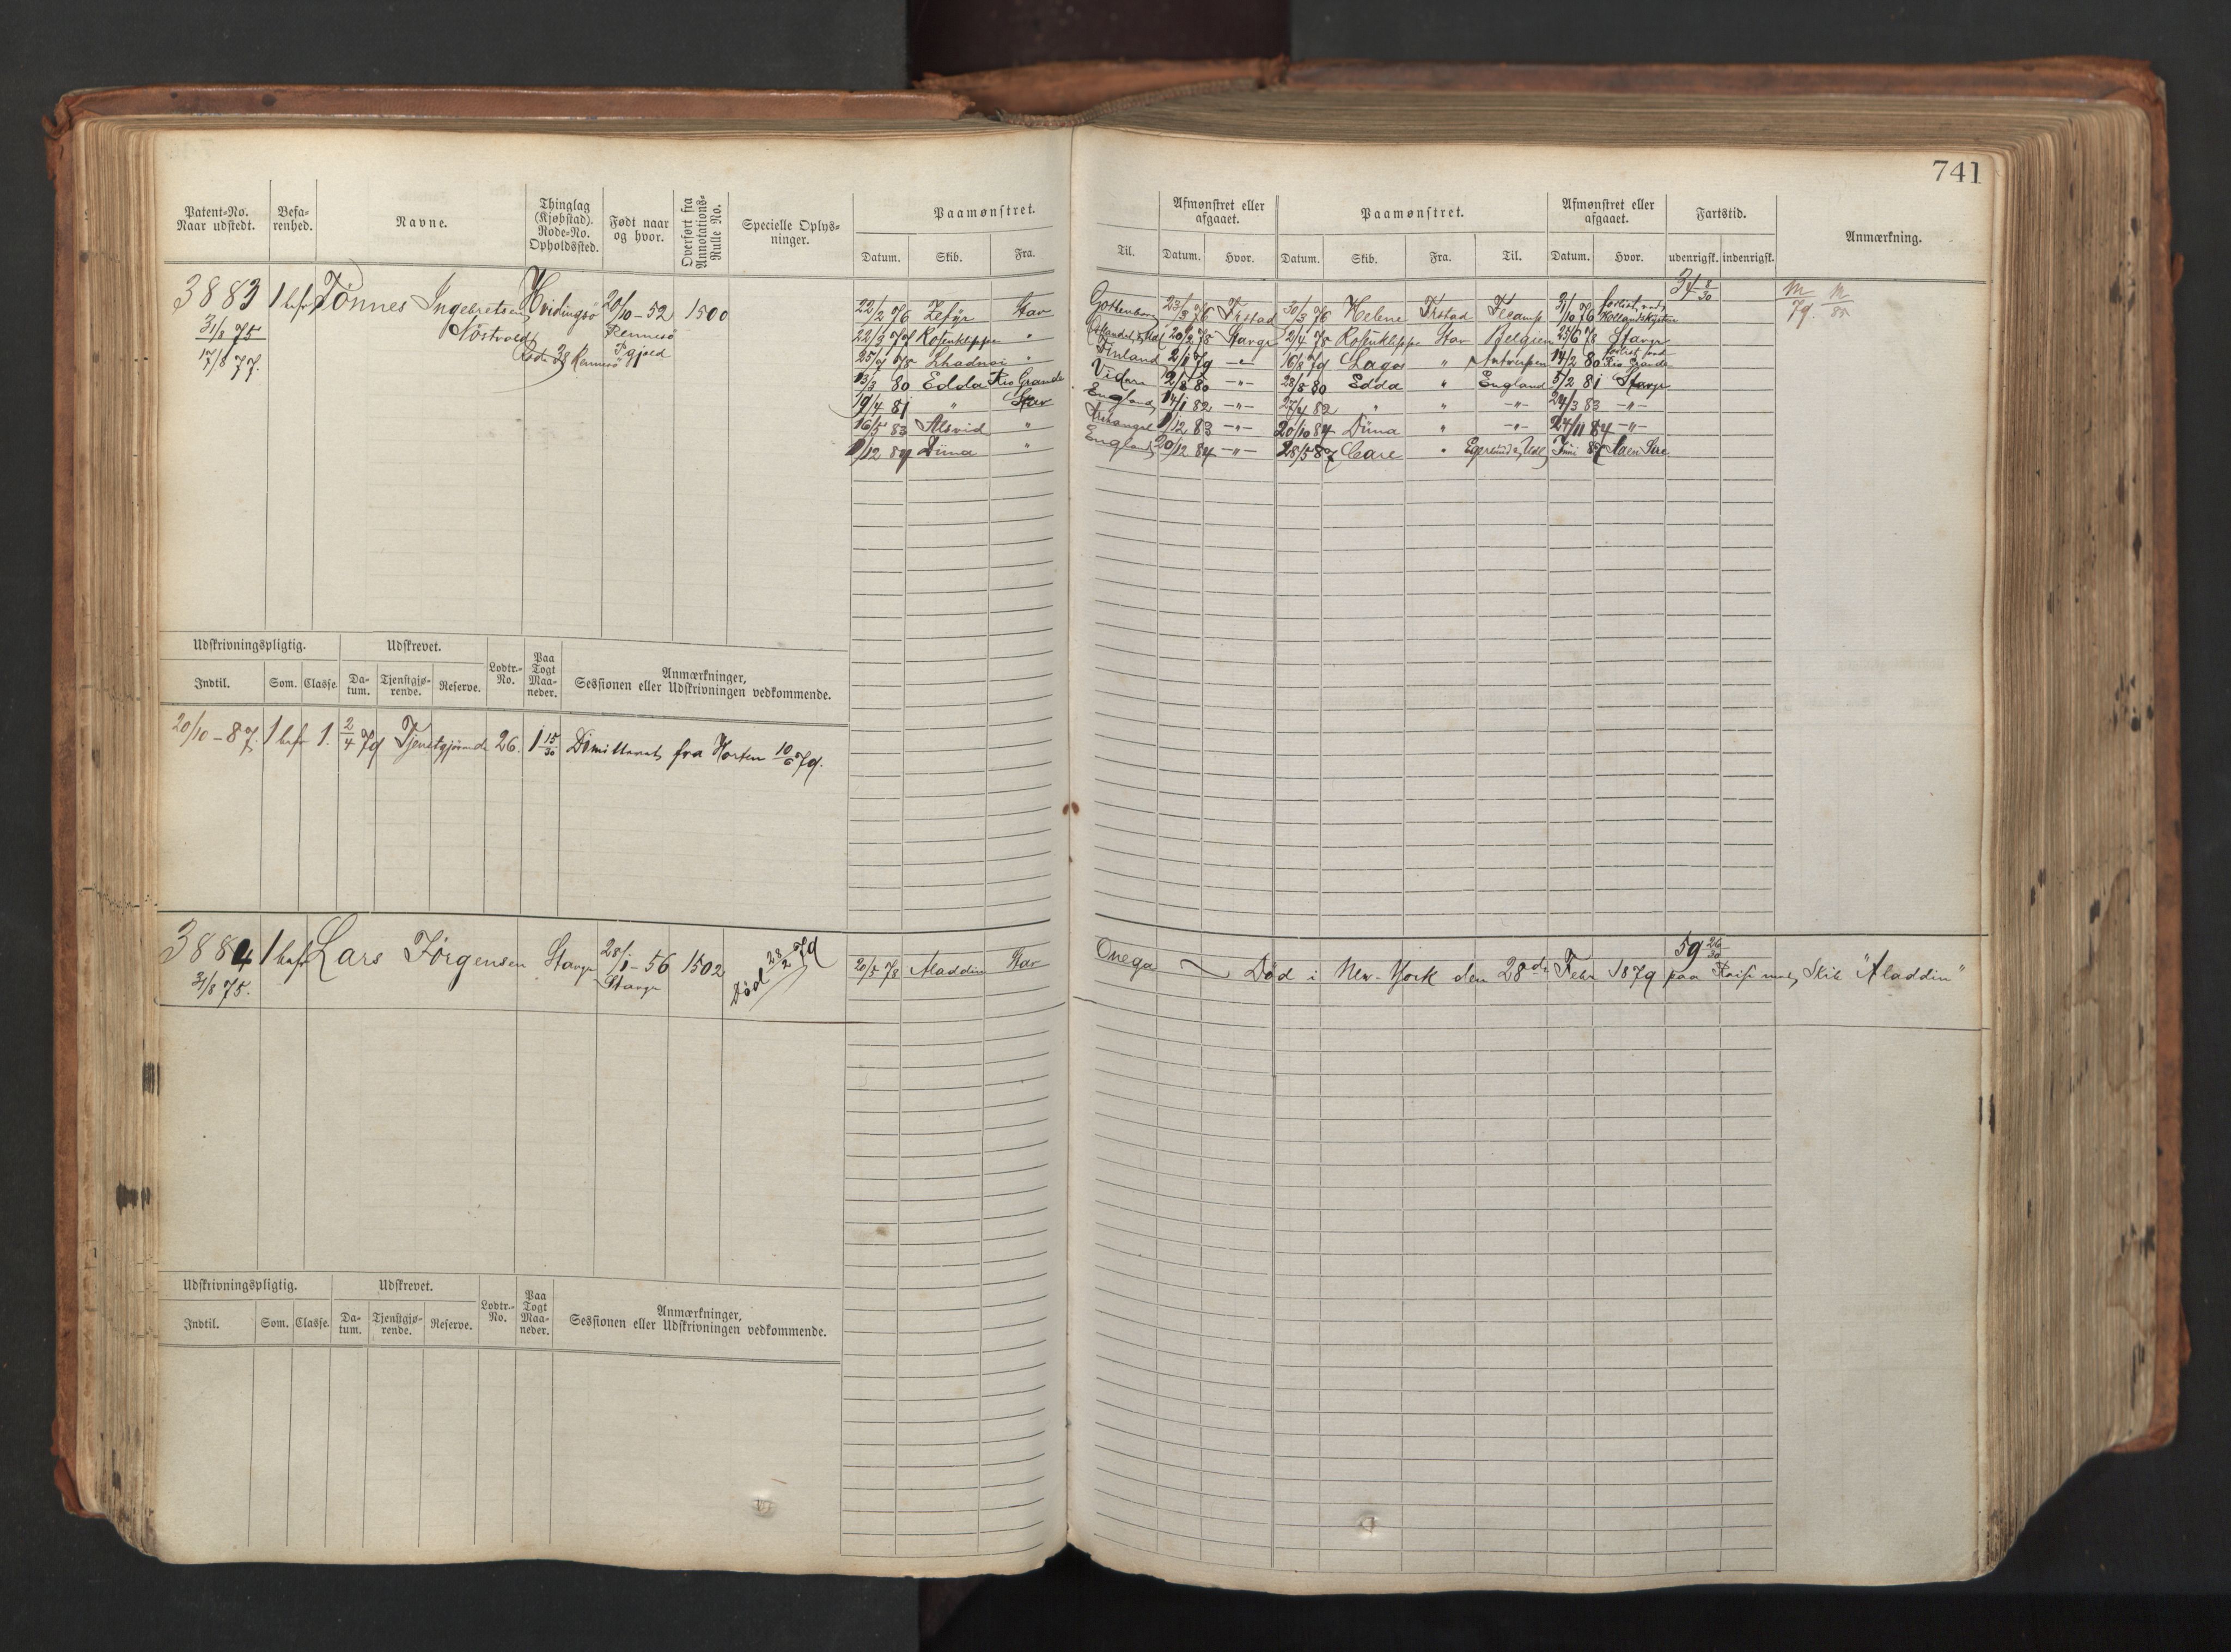 741
Patent-No. Naar udstedt.
Befa-renhed.
Navne.
Thinglag (Kjøbstad). Rode-No. Opholdssted.
Født naar og hvor.
Overført fra Annotations-Rulle No.
Specielle Oplys-ninger.
Paamønstret.
Datum. Skib. Fra.
Til.
Afmønstret eller afgaaet.
Datum. Hvor.
Paamønstret.
Datum. Skib. Fra. Til.
Afmønstret eller afgaaet.
Datum. Hvor.
Fartstid.
udenrigsk. indenrigsk.
Anmærkning.
3883 1 bef Tønnes Ingebretsen Hvidingsø 20/10-52 1500
31/8 75 Nöstvold Rennesö
17/8 77. Rode 38 Rennesö
34 8/30
79. 85
22/2 76 Zefyr Stav Gottenborg 23/3 76 Frstad 30/3 76 Helene Frstad Fecamp 31/10 76 forlist ved Hollandskysten
22/3 77 Rosenkleppe " 20/2 78 Stavgr 2/4 78 Rosenkleppe Stav Belgien 25/6 78 Stavgr
25/7 78 " Finland 2/1 79 -"- 16/8 79 Lagos " Antwerpen 14/2 80 forlist ved Rio Grande
13/3 80 Edda Rio Grande Vidare 2/8 80 -"- 28/8 80 Edda " England 5/2 81 Stavgr
19/4 81 " Stav England 14/1 82 -"- 27/4 82 " " -"- 24/3 83 -"-
16/5 83 Alsvid " 1/12 83 -"- 20/10 84 Düna " -"- 24/11 84 -"-
1/12 84 Düna " England 20/12 84 -"- 28/5 87 Care " Egersund, Udl Juni 87
Udskrivningspligtig. Udskrevet.
Lodtr.-No.
Paa Togt Maa-neder.
Anmærkninger, Sessionen eller Udskrivningen vedkommende.
Indtil. Som. Classe. Da-tum. Tjenstgjø-rende. Reserve.
20/10-87. 1 bef 1. 2/4 79 Tjenstgjørende 26. 1 15/30 Dimitteret fra Horten 10/6 79.
3884 1 bef Lars Jörgensen Stavgr 28/1-56 1502 Död 28/2 79 20/5 78 Aladdin Stav Onega
31/8 75. Stavgr
59 26/30
Död i New-York den 28de Febr 1879 paa Reise med Skib "Aladdin"
Udskrivningspligtig. Udskrevet.
Lodtr.-No.
Paa Togt Maa-neder.
Anmærkninger, Sessionen eller Udskrivningen vedkommende.
Indtil. Som. Classe. Da-tum. Tjenstgjø-rende. Reserve.